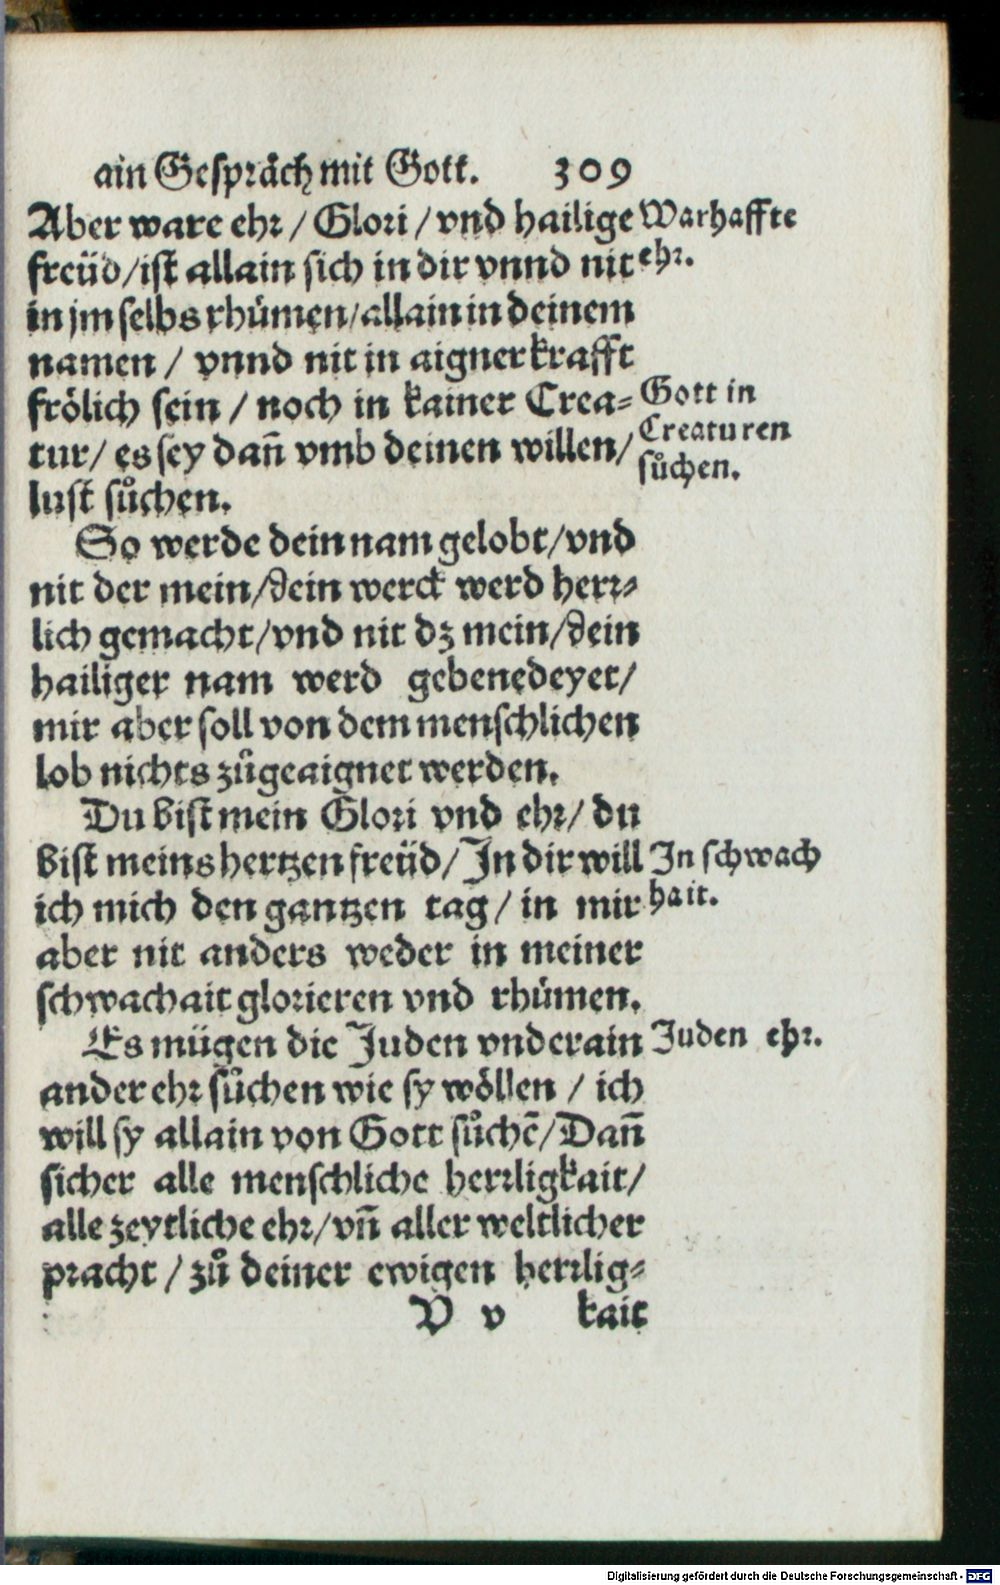 ain Gespräch mit Gott. 309
Aber ware ehr / Glori / vnd hailige
freüd / ist allain sich in dir vnnd nit
in jm selbs rhümen / allain in deinem
namen / vnnd nit in aigner krafft
frölich sein / noch in kainer Crea=
tur / es sey dañ vmb deinen willen /
lust sůchen.
So werde dein nam gelobt / vnd
nit der mein / dein werck werd herr=
lich gemacht / vnd nit dz mein / dein
hailiger nam werd gebenedeyet /
mir aber soll von dem menschlichen
lob nichts zůgeaignet werden.
Du bist mein Glori vnd ehr / du
bist meins hertzen freüd / In dir will
ich mich den gantzen tag / in mir
aber nit anders weder in meiner
schwachait glorieren vnd rhümen.
Es mügen die Juden vnderain
ander ehr sůchen wie sy wöllen / ich
will sy allain von Gott sůchē / Dañ
sicher alle menschliche herrligkait /
alle zeytliche ehr / vñ aller weltlicher
pracht / zů deiner ewigen herrlig=
V v kait
Warhaffte
ehr.
Gott in
Creaturen
sůchen.
In schwach
hait.
Juden ehr.
Digitalisierung gefördert durch die Deutsche Forschungsgemeinschaft - DFG